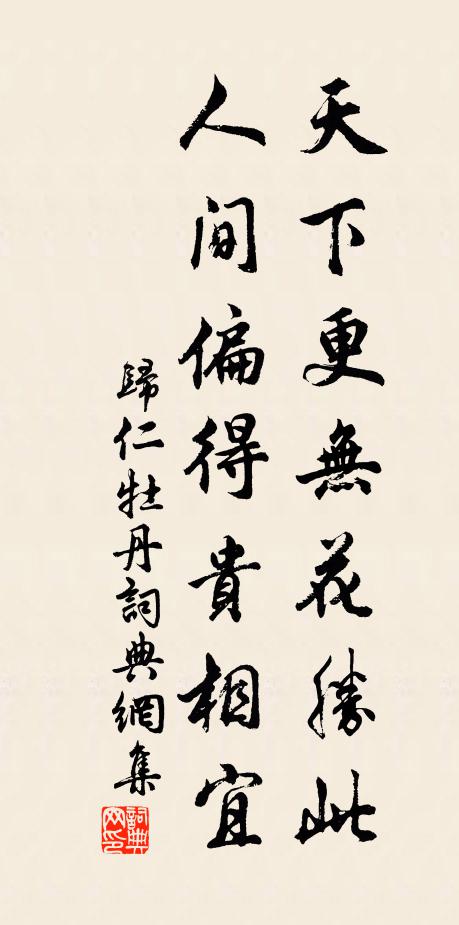 天下更無花勝此
人間偏得貴相宜
歸仁牡丹詞典網集
詞典网印